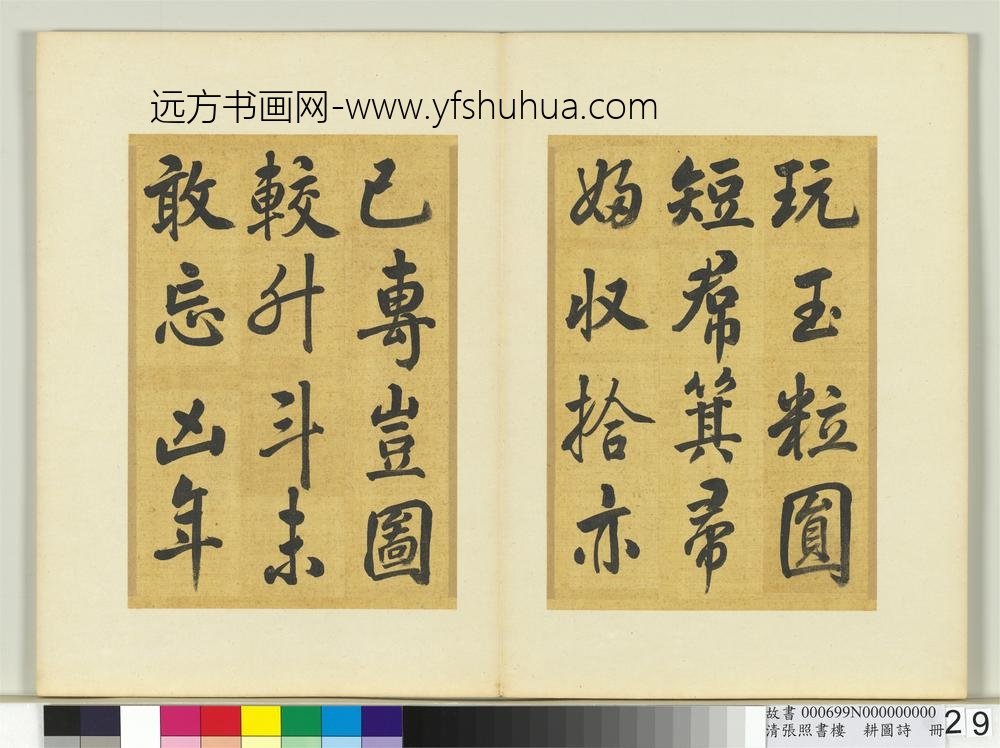 远方书画网-www.yfshuhua.com
玩玉粒圓
短帬箕帚
婦収拾亦
已專豈圖
較升斗未
敢忘凶年
故書 000699N000000000
清張照書樓　耕圖詩　冊
29